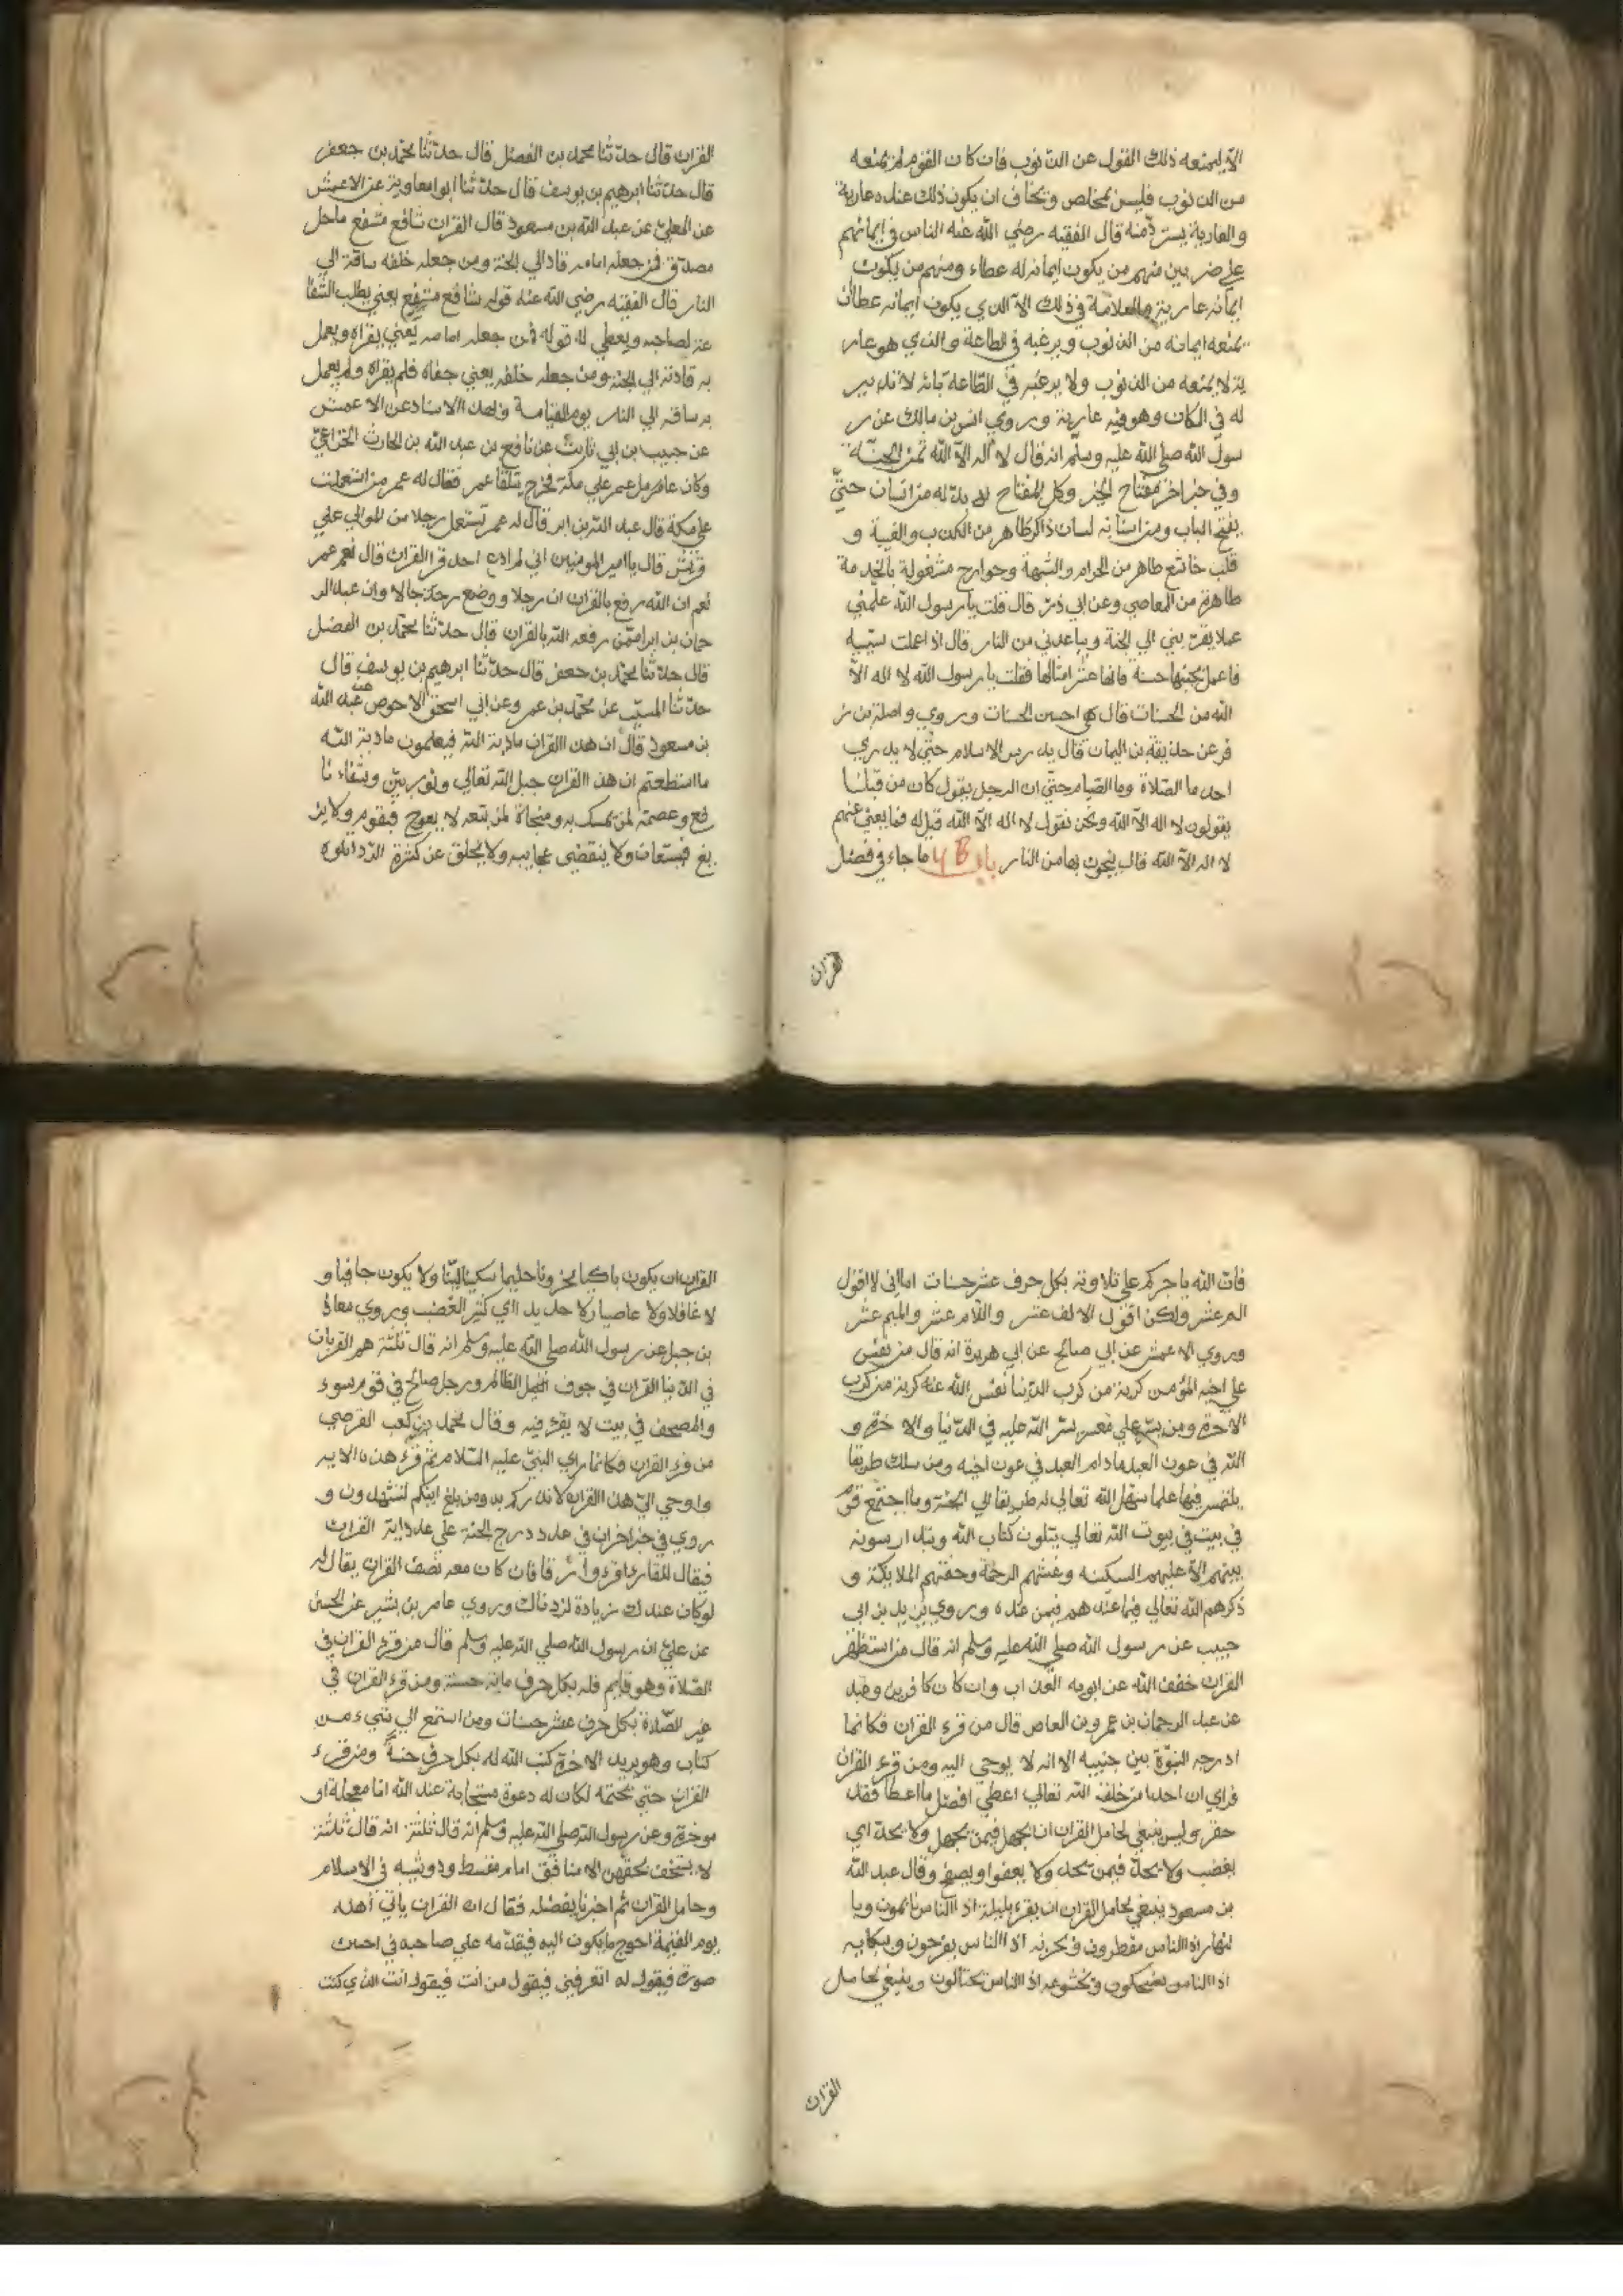 الا ليمنعه ذلك القول عن الذنوب فان كان القوم لم يمنعه
من الذنوب فليس بمخلص ونخاف ان يكون ذلك عنده عارية
والعارية يسترد منه قال الفقيه رضي الله عنه الناس في ايمانهم
علي ضربين منهم من يكون ايمانه له عطاء ومنهم من يكون
ايمانه عارية والعلامة في ذلك الا الذي يكون ايمانه عطاء ان
يمنعه ايمانه من الذنوب ويرغبه في الطاعة والذي هو عار
ية لا يمنعه من الذنوب ولا يرغبه في الطاعة
له في الكان وهو فيه عارية وروي انس بن مالك عن ر
سول الله صلي الله عليه وسلم انه قال لا اله الا الله ثمن الجنة
وفي خبر اخر مفتاح الجنة وكل المفتاح لا بد له من اسنان حتي
يفتح الباب ومن اسنانه لسان ذاكر طاهر من الكذب والغيبة و
قلب خاشع طاهر من الحرام والشبهة وجوارح مشغولة بالخدمة
طاهرة من المعاصي وعن ابي ذر قال قلت يا رسول الله علمني
عملا يقربني الي الجنة ويباعدني من النار قال اذا عملت سيية
فاعمل بجنبها حسنة فانها عشر امثالها فقلت يا رسول الله لا اله الا
الله من الحسنات قال هي احسن الحسنات وروي واصلة بن ز
فر عن حذيفة بن اليمان قال يدرس الاسلام حتي لا يدري
احد ما الصلاة وما الصيام حتي ان الرجل يقول كان من قبلنا
يقولون لا اله الا الله ونحن نقول لا اله الا الله قيل له فما يغني عنهم
لا اله الا الله قال ينجون بها من النار باب ما جاء في فضل
القران
القران قال حدثنا محمد بن الفضل قال حدثنا محمد بن جعفر
قال حدثنا ابرهيم بن يوسف قال حدثنا ابوا معاوية عن الاعمش
عن المعلي عن عبد الله بن مسعود قال القران شافع مشفع ماحل
مصدق فمن جعله امامه قاد الي الجنة ومن جعله خلفه ساقه الي
النار قال الفقيه رضي الله عنه قوله شافع مشفع يعني يطلب الشفا
عة لصاحبه ويعطي له قوله فمن جعله امامه يعني يقراه ويعمل
به قاده الي الجنة ومن جعله خلفه يعني جفاه فلم يقراه ولم يعمل
به ساقه الي النار يوم القيامة وبهذا الاسناد عن الاعمش
عن حبيب بن ابي ثابت عن نافع بن عبد الله بن الحارث الخزاعي
وكان عامل عمر علي مكة فخرج يتلقا عمر فقال له عمر من استعملت
علي مكة قال عبد الرحمن بن ابر قال له عمر تستعمل رجلا من الموالي علي
قريش قال يا امير المومنين اني لم ادع احد اقرا القران قال نعم عمر
نعم ان الله رفع بالقران رجلا ووضع رجالا وان عبد الر
حمان بن ابرا ممن رفعه الله بالقران قال حدثنا محمد بن الفضل
قال حدثنا محمد بن جعفر قال حدثنا ابرهيم بن يوسف قال
حدثنا المسيب عن محمد بن عمر وعن ابي اسحق الاحوص عن عبد الله
بن مسعود قال ان هذا القران مادبة الله فيعلمون مادبة الله
ما استطعتم ان هذا القران حبل الله تعالي ونور بين وشفاء نا
فع وعصمة لمن تمسك به ومنجاة لمن تبعه لا يعوج فيقوم ولا يز
يغ فيستعاب ولا ينقضي عجايبه ولا يخلق عن كثرة الرد اتلوه
فان الله ياجركم علي تلاوته بكل حرف عشر حسنات اما اني لا اقول
الم عشر ولكن اقول الالف عشر واللام عشر والميم عشر
وروي الاعمش عن ابي صالح عن ابي هريرة انه قال من نفس
علي اخيه المؤمن كربة من كرب الدنيا نفس الله عنه كربة من كرب
الاخرة ومن يسر علي معسر يسر الله عليه في الدنيا والاخرة و
الله في عون العبد ما دام العبد في عون اخيه ومن سلك طريقا
يلتمس فيها علما سهل الله تعالي له طريقا الي الجنة وما اجتمع قوم
في بيت في بيوت الله تعالي يتلون كتاب الله ويتدارسونه
بينهم الا عليهم السكينه وغشتهم الرحمة وحفتهم الملايكة و
ذكرهم الله تعالي فيما عنده هم فيمن عنده وروي يزيد بن ابي
حبيب عن رسول الله صلي الله عليه وسلم انه قال من استظهر
القران خفف الله عن ابويه العذاب وان كان كافرين وعبد
عن عبد الرحمان بن عمرو بن العاص قال من قرء القران فكانما
ادرجه النبوة بين جنبيه الا انه لا يوحي اليه ومن قرء القران
فراي ان احدا من خلقه الله تعالي اعطي افضل ما اعطا فقد
حقر وليس ينبغي لحامل القران ان يجهل فيمن يجهل ولا يحد اي
يغضب ولا يحد فيمن يحد ولا يعفوا ويصفح وقال عبد الله
بن مسعود ينبغي لحامل القران ان يقرء بليله اذا الناس نايمون وبا
لنهار اذا الناس مفطرون وبحزنه اذا الناس يفرحون وببكايه
اذا الناس يضحكون وبخشوعه اذا الناس يختالون وينبغي لحامل
القران
القران ان يكون باكيا محزونا حليما سكينا لينا ولا يكون جافيا و
لا غافلا ولا عاصيا ولا حديدا اي كثير الغضب وروي معاذ
بن جبل عن رسول الله صلي الله عليه وسلم انه قال ثلثة هم الغربان
في الدنيا القران في جوف الظالم ورجل صالح في قوم سوء
والمصحف في بيت لا يقرء فيه وقال محمد بن كعب القرضي
من قرء القران فكانما راي النبي عليه السلام ثم قرء هذه الايه
واوحي الي هذا القران لانذركم به ومن بلغ اينكم لتشهدون و
روي في خبر اخر ان في عدد درج الجنة علي عدد اية القران
فيقال للقارئ اقرء وارقا فان كان معه نصف القران يقال له
لو كان عندك زيادة لزدناك وروي عامر بن بشير عن الحسن
عن علي ان رسول الله صلي الله عليه وسلم قال من قرء القران في
الصلاة وهو قايم فله بكل حرف ماية حسنة ومن قرء القران في
غير الصلاة بكل حرف عشر حسنات ومن استمع الي شيء من
كتاب وهو يريد الاخرة كتب الله له بكل حرف حسنة ومن قرء
القران حتي يختمه لكان له دعوة مستجابة عند الله اما معجلة او
موخرة وعن رسول الله صلي الله عليه وسلم انه قال ثلثة انه قال ثلثة
لا يستخف بحقهن الا منافق امام مقسط وذو شيبه في الاسلام
وحامل القران ثم اخبرنا بفضله فقال ان القران ياتي اهله
يوم القيمة احوج ما يكون اليه فيقدمه علي صاحبه في احسن
صورة فيقول له اتعرفني فيقول من انت فيقول انت الذي كنت